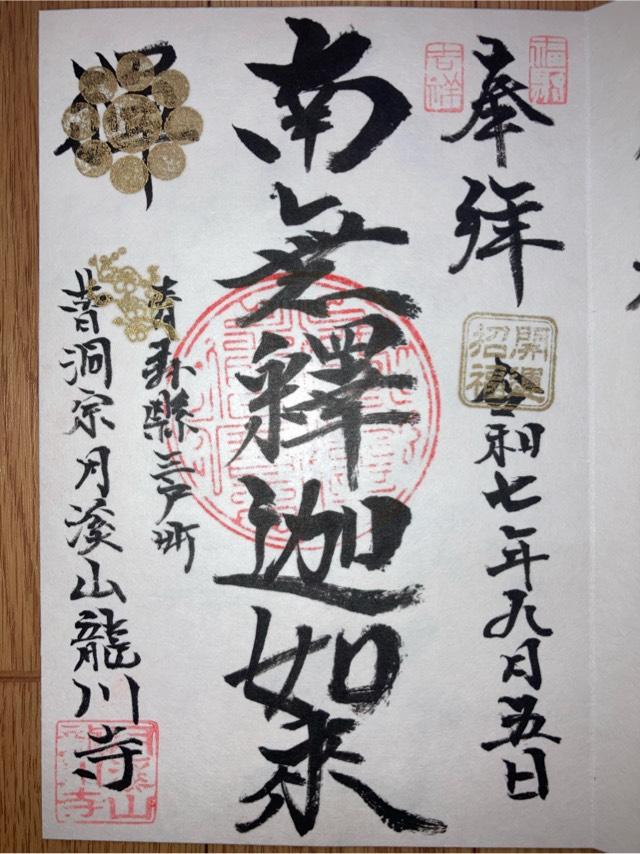 奉拝
福聚
吉祥
開運
招福
令和七年九月五日
南無釋迦如来
禅
青森縣三戸町
曹洞宗月溪山龍川寺